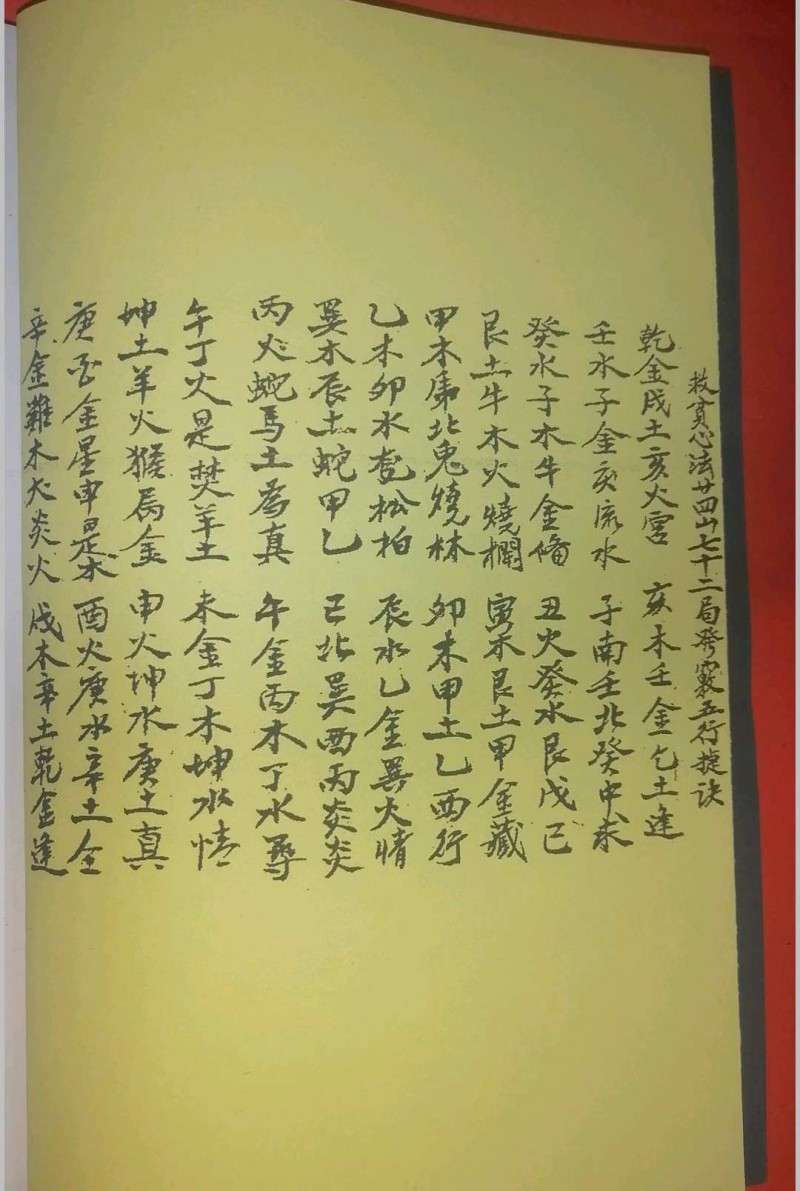 救貧心法廿四山七十二局發竅五行捷訣
乾金戌土亥火宮 亥木壬金乞土逢
壬水子金亥流水 子南壬北癸中求
癸水子木牛金備 丑火癸水艮戊己
艮土牛木火燒欄 寅禾艮土甲金藏
甲木虎北鬼燒林 卯未甲土乙西行
乙木卯水在松柏 辰水乙金巽火情
巽木辰土蛇甲乙 己北巽西丙炎炎
丙火蛇馬土為真 午金丙木丁水尋
午丁火是焚羊土 未金丁木坤水情
坤土羊火猴局金 申火坤水庚土真
庚金星申是水 酉火庚水辛土全
辛金雞木火炎火 戌木辛土乾金逢